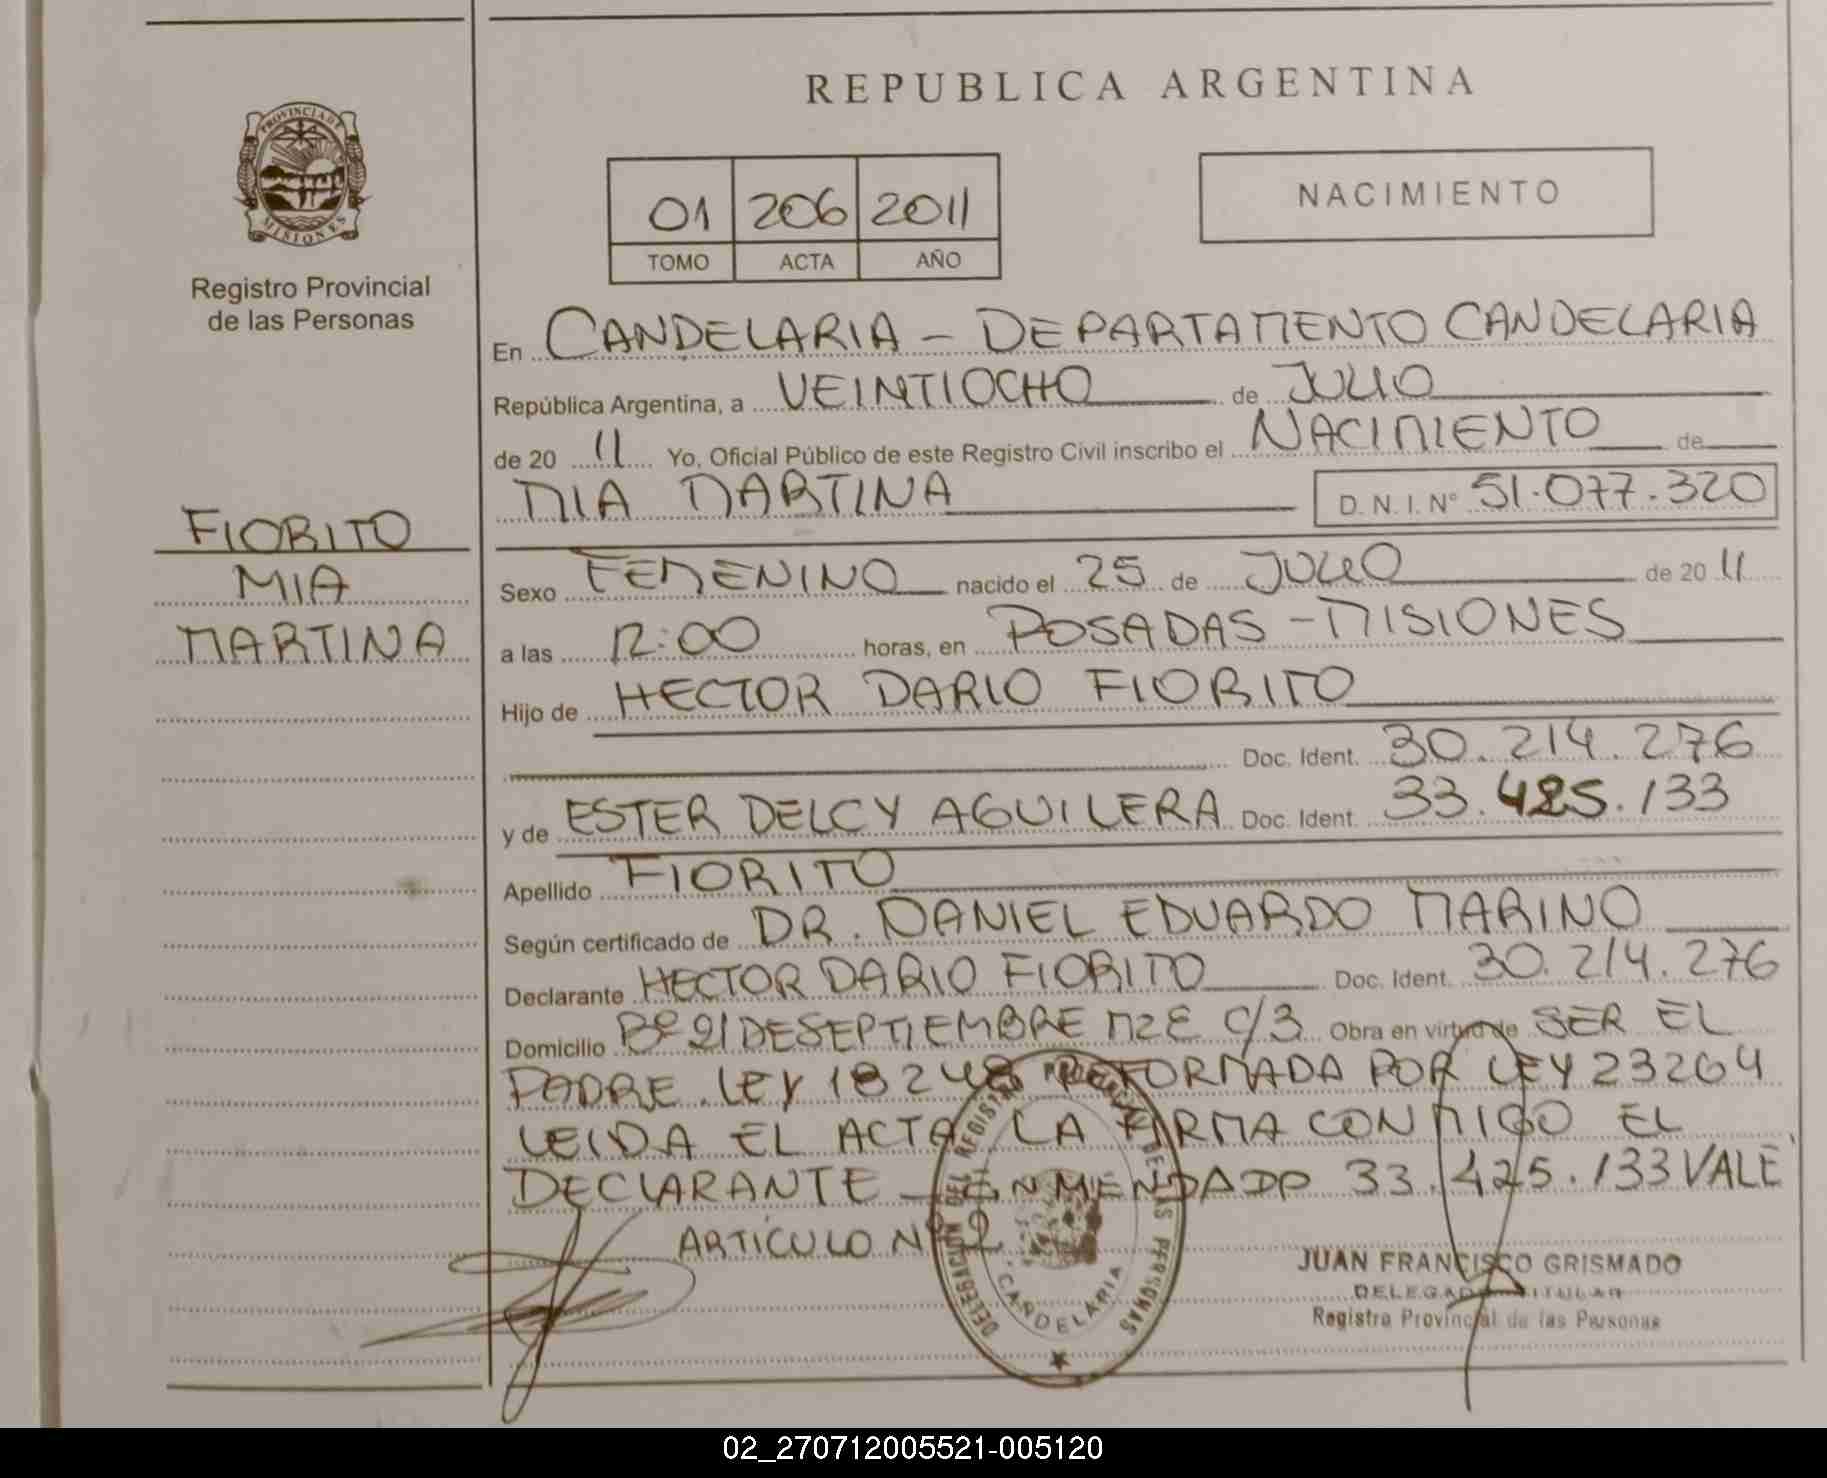 REPUBLICA ARGENTINA
PROVINCIA DE
MISIONES
Registro Provincial
de las Personas
01 206 2011
TOMO ACTA AÑO
NACIMIENTO
En CANDELARIA - DEPARTAMENTO CANDELARIA
República Argentina, a VEINTIOCHO de JULIO
de 20 11 Yo, Oficial Público de este Registro Civil inscribo el NACIMIENTO de
MIA MARTINA D.N.I. N° 51.077.320
FIORITO
MIA
MARTINA
Sexo FEMENINO nacido el 25 de JULIO de 20 11
a las 12:00 horas, en POSADAS - MISIONES
Hijo de HECTOR DARIO FIORITO
Doc. Ident. 30.214.276
y de ESTER DELCY AGUILERA Doc. Ident. 33.425.133
Apellido FIORITO
Según certificado de DR. DANIEL EDUARDO MARINO
Declarante HECTOR DARIO FIORITO Doc. Ident. 30.214.276
Domicilio B° 21 DE SEPTIEMBRE MZ E C/3 Obra en virtud de SER EL
PADRE. LEY 18248 REFORMADA POR LEY 23264
LEIDA EL ACTA LA FIRMA CONMIGO EL
DECLARANTE - ENMENDADO 33.425.133 VALE
ARTÍCULO Nº 2
DELEGACION DEL REGISTRO PROVINCIAL DE LAS PERSONAS
CANDELARIA
JUAN FRANCISCO GRISMADO
DELEGADO TITULAR
Registro Provincial de las Personas
02_270712005521-005120